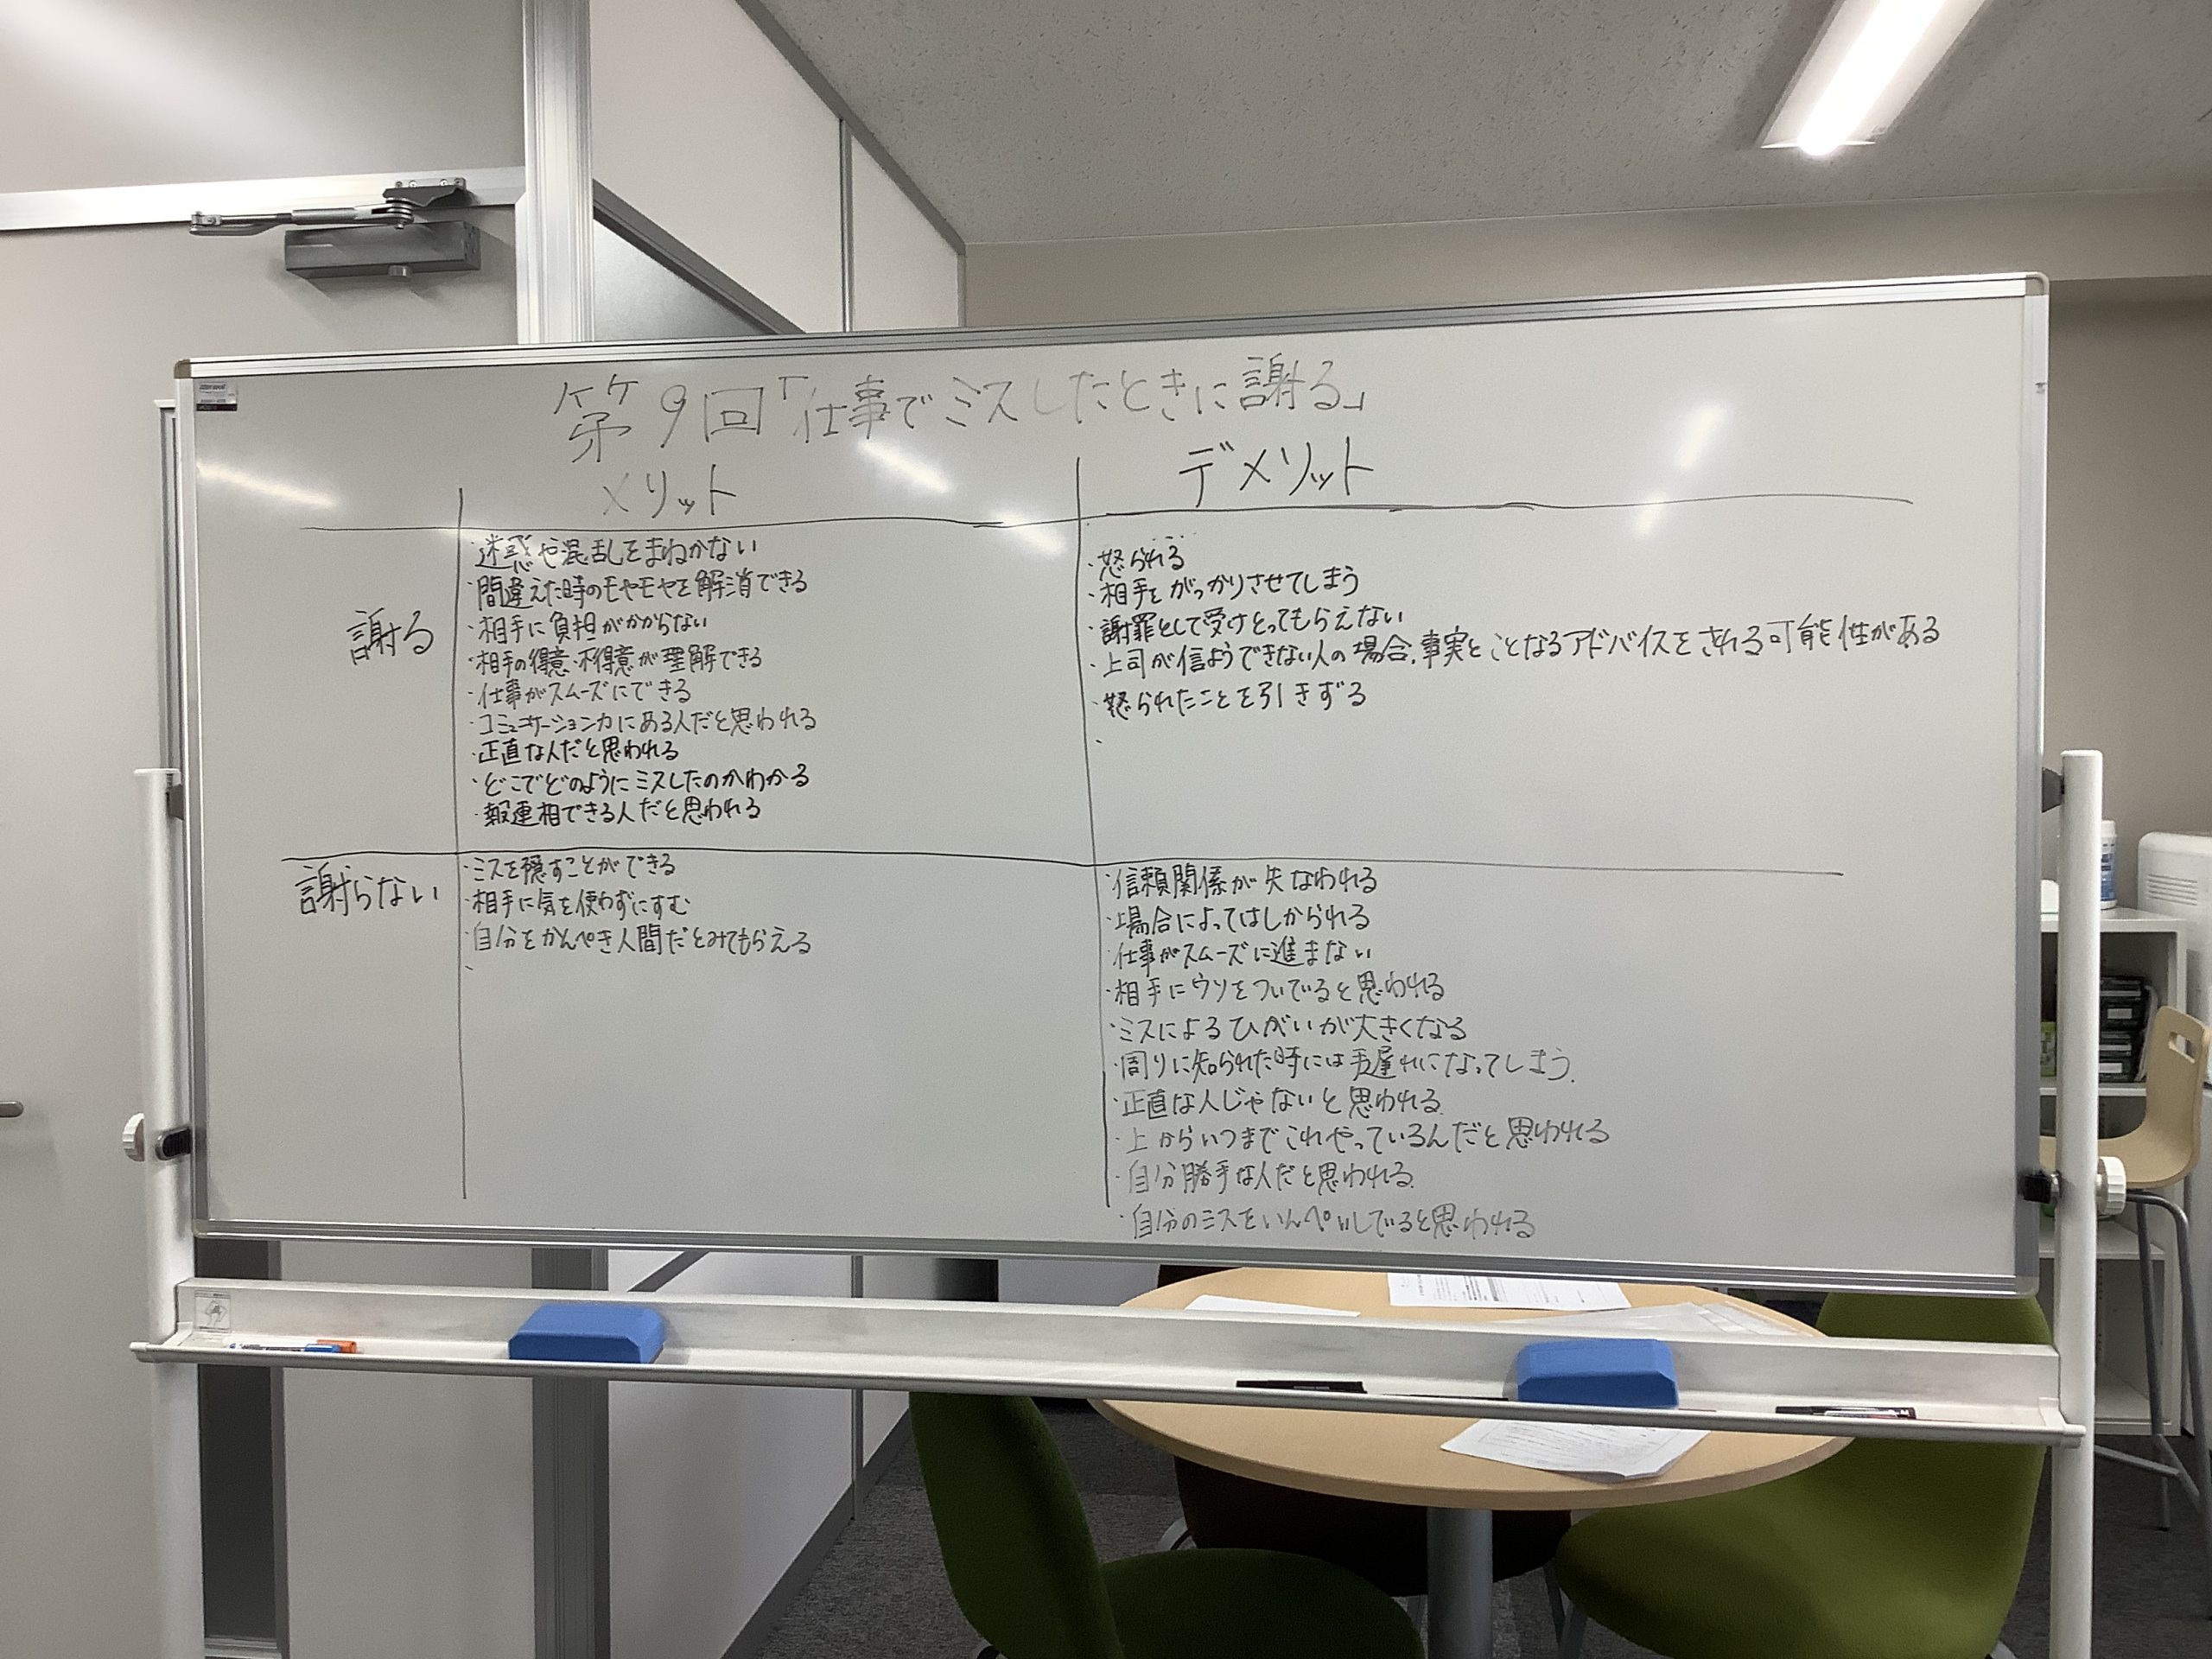 第9回「仕事でミスしたときに謝る」
メリット
デメリット
謝る
・迷惑や混乱をまねかない
・間違えた時のモヤモヤを解消できる
・相手に負担がかからない
・相手の得意・不得意が理解できる
・仕事がスムーズにできる
・コミュニケーション力にある人だと思われる
・正直な人だと思われる
・どこでどのようにミスしたのかわかる
・報連相できる人だと思われる
・怒られる
・相手をがっかりさせてしまう
・謝罪として受けとってもらえない
・上司が信ようできない人の場合、事実とことなるアドバイスをされる可能性がある
・怒られたことを引きずる
・
謝らない
・ミスを隠すことができる
・相手に気を使わずにすむ
・自分をかんぺき人間だとみてもらえる
・
・信頼関係が失なわれる
・場合によってはしかられる
・仕事がスムーズに進まない
・相手にウソをついていると思われる
・ミスによるひがいが大きくなる
・周りに知られた時には手遅れになってしまう.
・正直な人じゃないと思われる
・上からいつまでこれやっているんだと思われる
・自分勝手な人だと思われる
・自分のミスをいんぺいしていると思われる